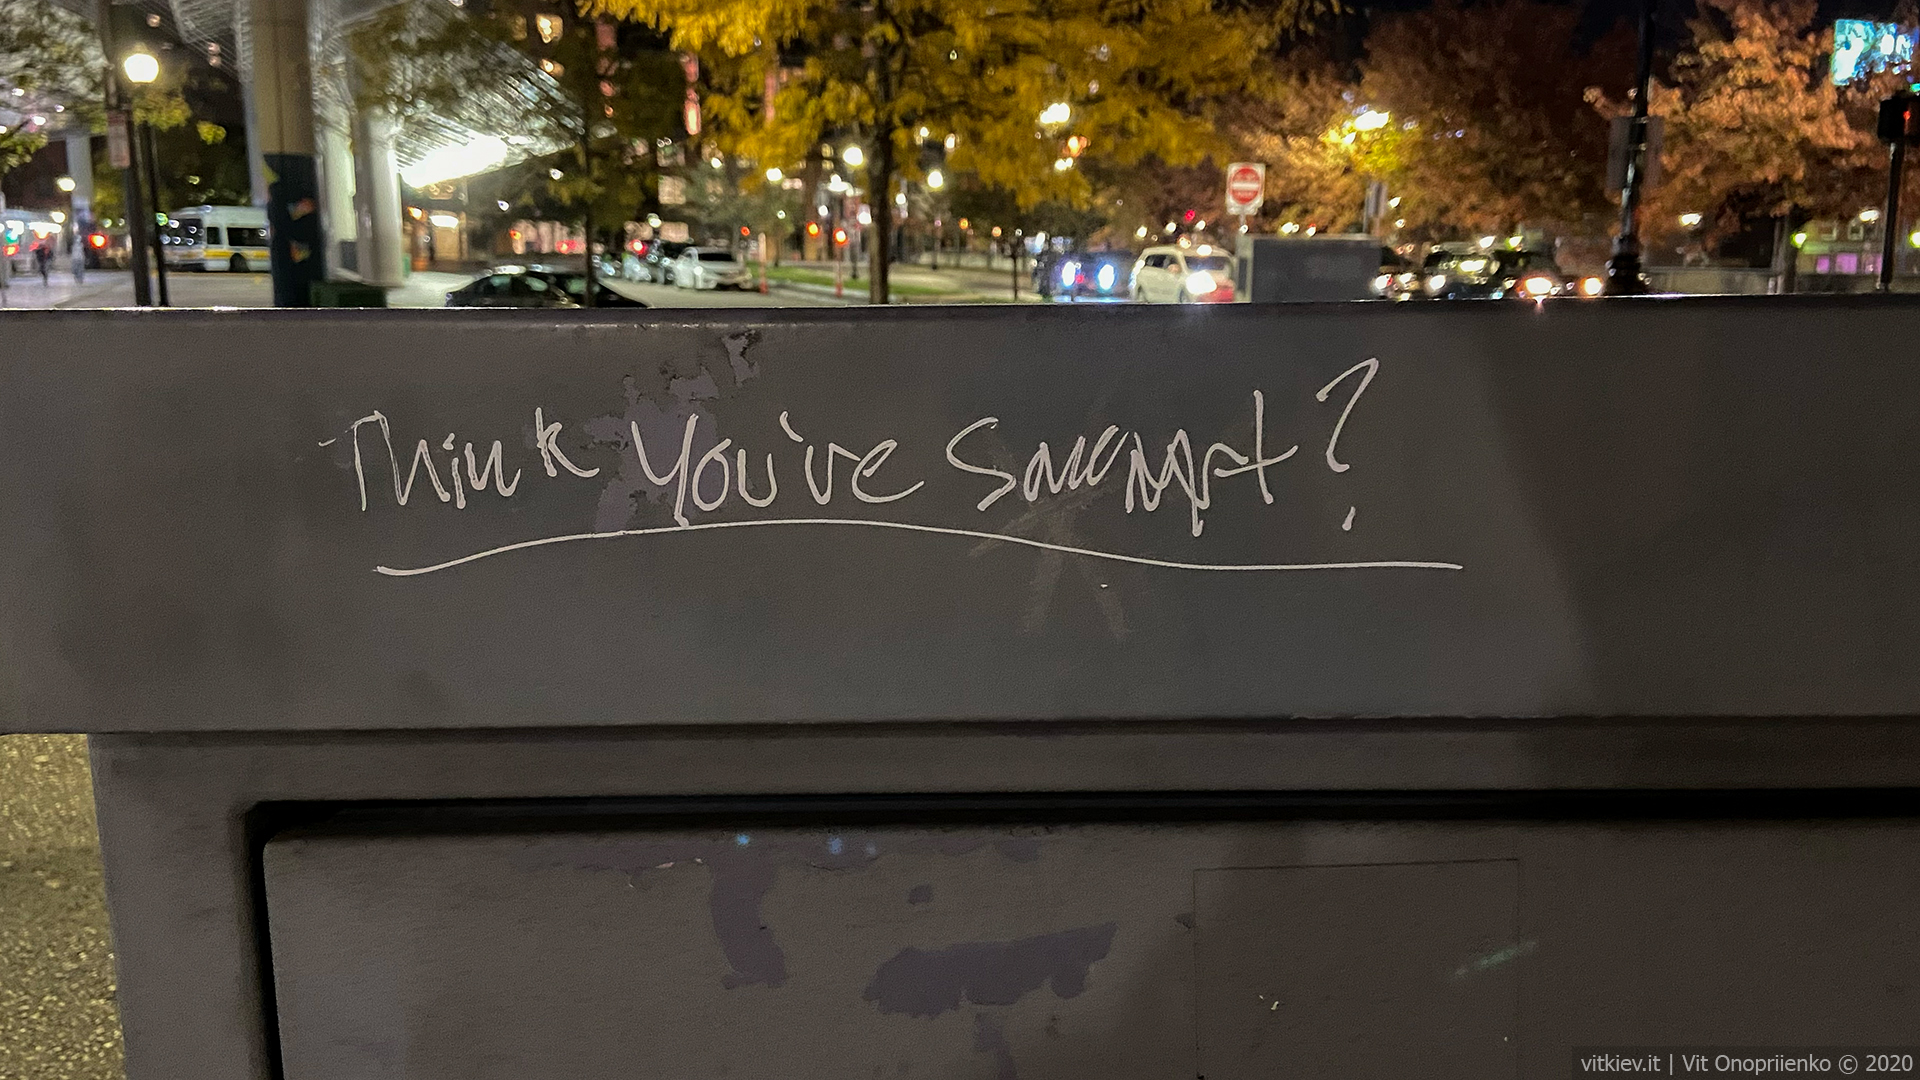 Think You've
vitkiev.it | Vit Onopriienko © 2020